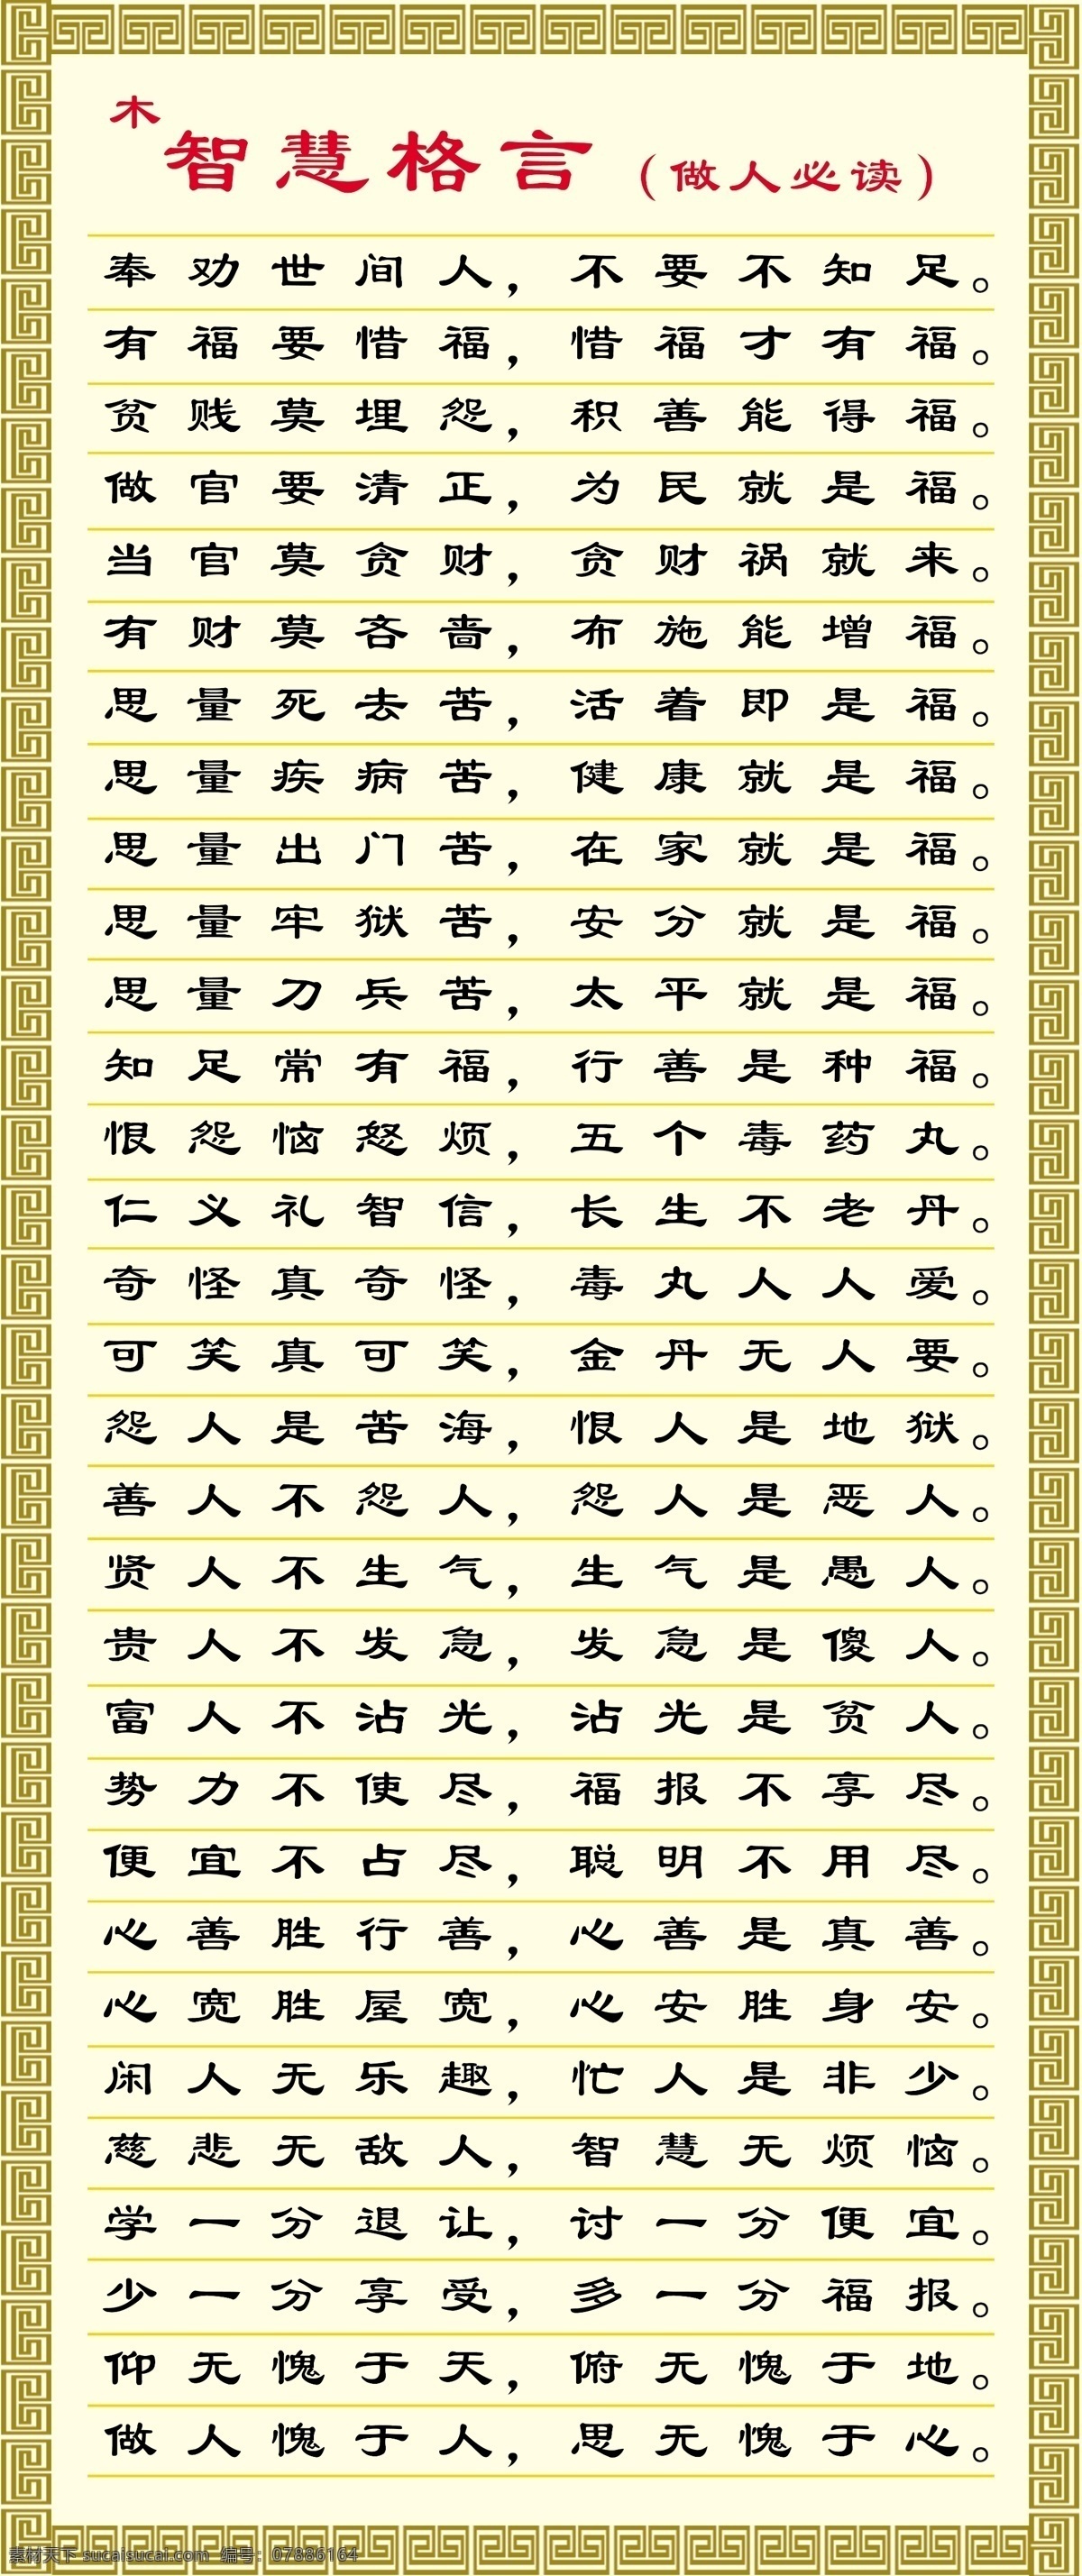 木
智慧格言（做人必读）
奉劝世间人，不要不知足。
有福要惜福，惜福才有福。
贫贱莫埋怨，积善能得福。
做官要清正，为民就是福。
当官莫贪财，贪财祸就来。
有财莫吝啬，布施能增福。
思量死去苦，活着即是福。
思量疾病苦，健康就是福。
思量出门苦，在家就是福。
思量牢狱苦，安分就是福。
思量刀兵苦，太平就是福。
知足常有福，行善是种福。
恨怨恼怒烦，五个毒药丸。
仁义礼智信，长生不老丹。
奇怪真奇怪，毒丸人人爱。
可笑真可笑，金丹无人要。
怨人是苦海，恨人是地狱。
善人不怨人，怨人是恶人。
贤人不生气，生气是愚人。
贵人不发急，发急是傻人。
富人不沾光，沾光是贫人。
势力不使尽，福报不享尽。
便宜不占尽，聪明不用尽。
心善胜行善，心善是真善。
心宽胜屋宽，心安胜身安。
闲人无乐趣，忙人是非少。
慈悲无敌人，智慧无烦恼。
学一分退让，讨一分便宜。
少一分享受，多一分福报。
仰无愧于天，俯无愧于地。
做人愧于人，思无愧于心。
素材天下 sucaisucai.com 编号：07886164